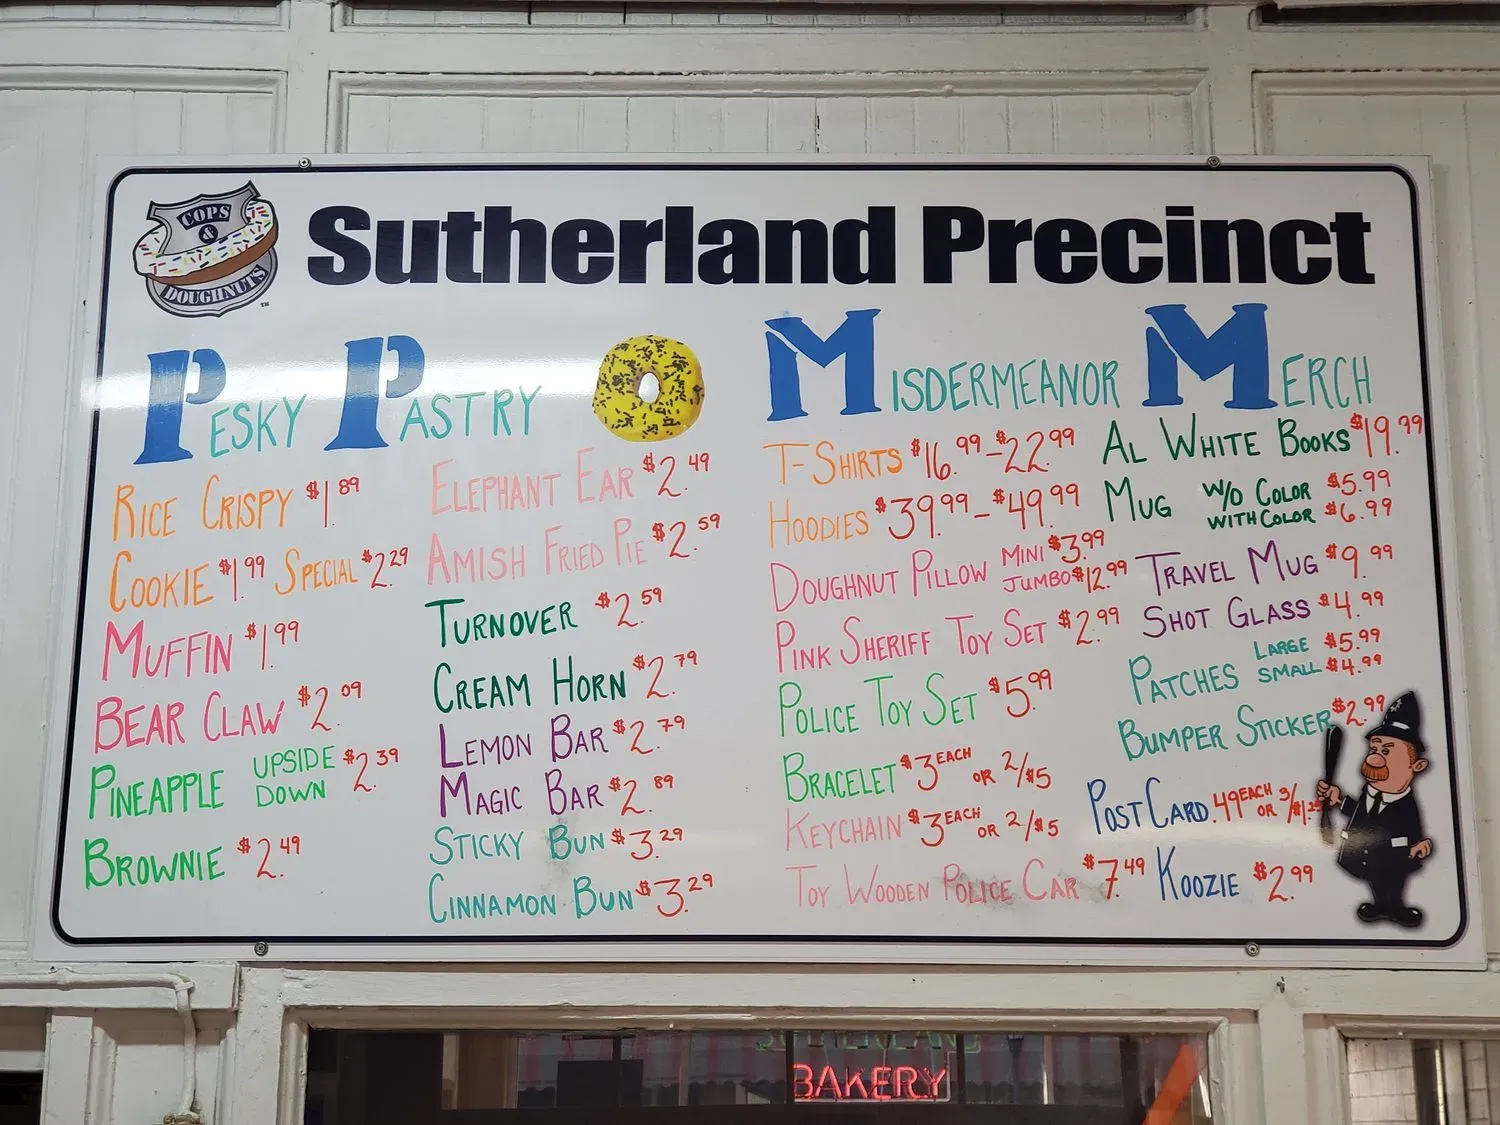 COPS
&
DOUGHNUTS
TM
Sutherland Precinct
PESKY PASTRY
RICE CRISPY $1.89
COOKIE $1.99 SPECIAL $2.29
MUFFIN $1.99
BEAR CLAW $2.09
PINEAPPLE UPSIDE DOWN $2.39
BROWNIE $2.49
ELEPHANT EAR $2.49
AMISH FRIED PIE $2.59
TURNOVER $2.59
CREAM HORN $2.79
LEMON BAR $2.79
MAGIC BAR $2.89
STICKY BUN $3.29
CINNAMON BUN $3.29
MISDERMEANOR MERCH
T-SHIRTS $16.99-$22.99
HOODIES $39.99-$49.99
DOUGHNUT PILLOW MINI $3.99
JUMBO $12.99
PINK SHERIFF TOY SET $2.99
POLICE TOY SET $5.99
BRACELET $3 EACH OR 2/$5
KEYCHAIN $3 EACH OR 2/$5
TOY WOODEN POLICE CAR $7.49
AL WHITE BOOKS $19.99
MUG W/O COLOR $5.99
WITH COLOR $6.99
TRAVEL MUG $9.99
SHOT GLASS $4.99
PATCHES LARGE $5.99
SMALL $4.99
BUMPER STICKER $2.99
POSTCARD .49 EACH OR 3/
KOOZIE $2.99
SUTHERLAND
BAKERY